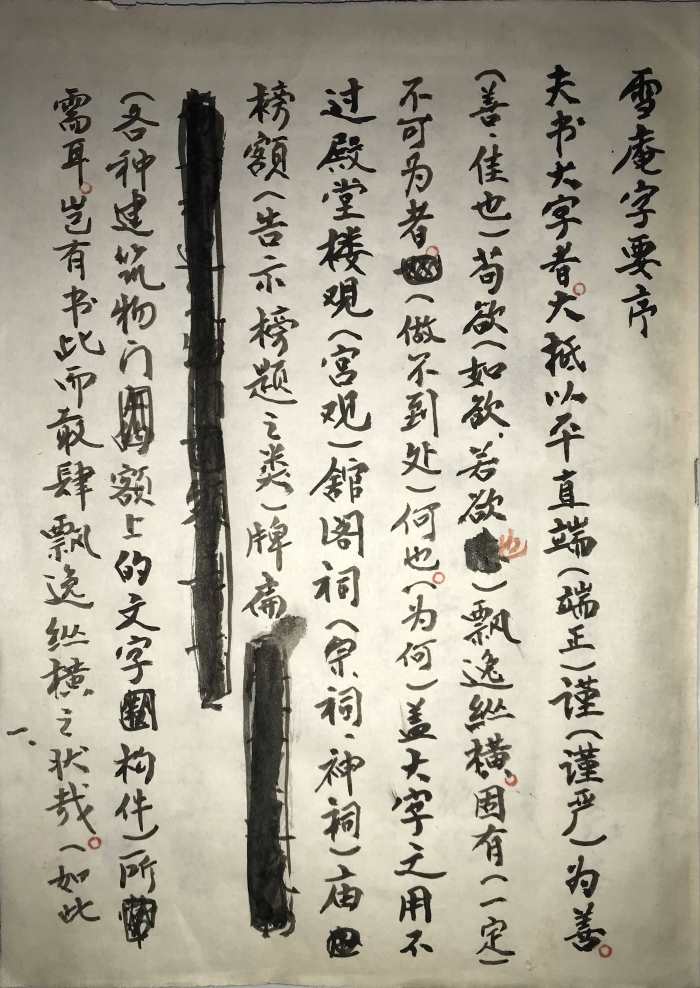 雪庵字要序
夫书大字者。大抵以平直端（端正）谨（谨严）为善。
（善、佳也）苟欲（如欲、若欲也）飘逸纵横，固有（一定）
不可为者。（做不到处）何也。（为何）盖大字之用不
过殿堂楼观（宫观）馆阁祠（祭祠、神祠）庙
榜额（告示榜题之类）牌扁
（各种建筑物门额上的文字构件）所
需耳。岂有书此而敢肆飘逸纵横之状哉。（如此
一、